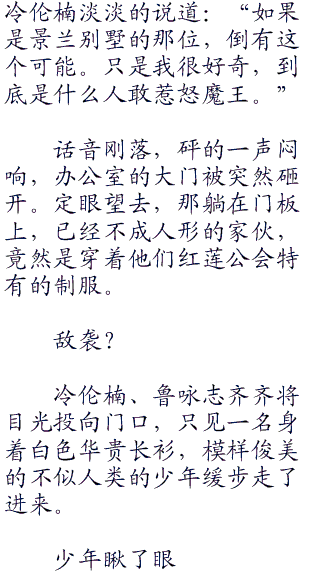 冷伦楠淡淡的说道：“如果
是景兰别墅的那位，倒有这
个可能。只是我很好奇，到
底是什么人敢惹怒魔王。”
话音刚落，砰的一声闷
响，办公室的大门被突然砸
开。定眼望去，那躺在门板
上，已经不成人形的家伙，
竟然是穿着他们红莲公会特
有的制服。
敌袭？
冷伦楠、鲁咏志齐齐将
目光投向门口，只见一名身
着白色华贵长衫，模样俊美
的不似人类的少年缓步走了
进来。
少年瞅了眼